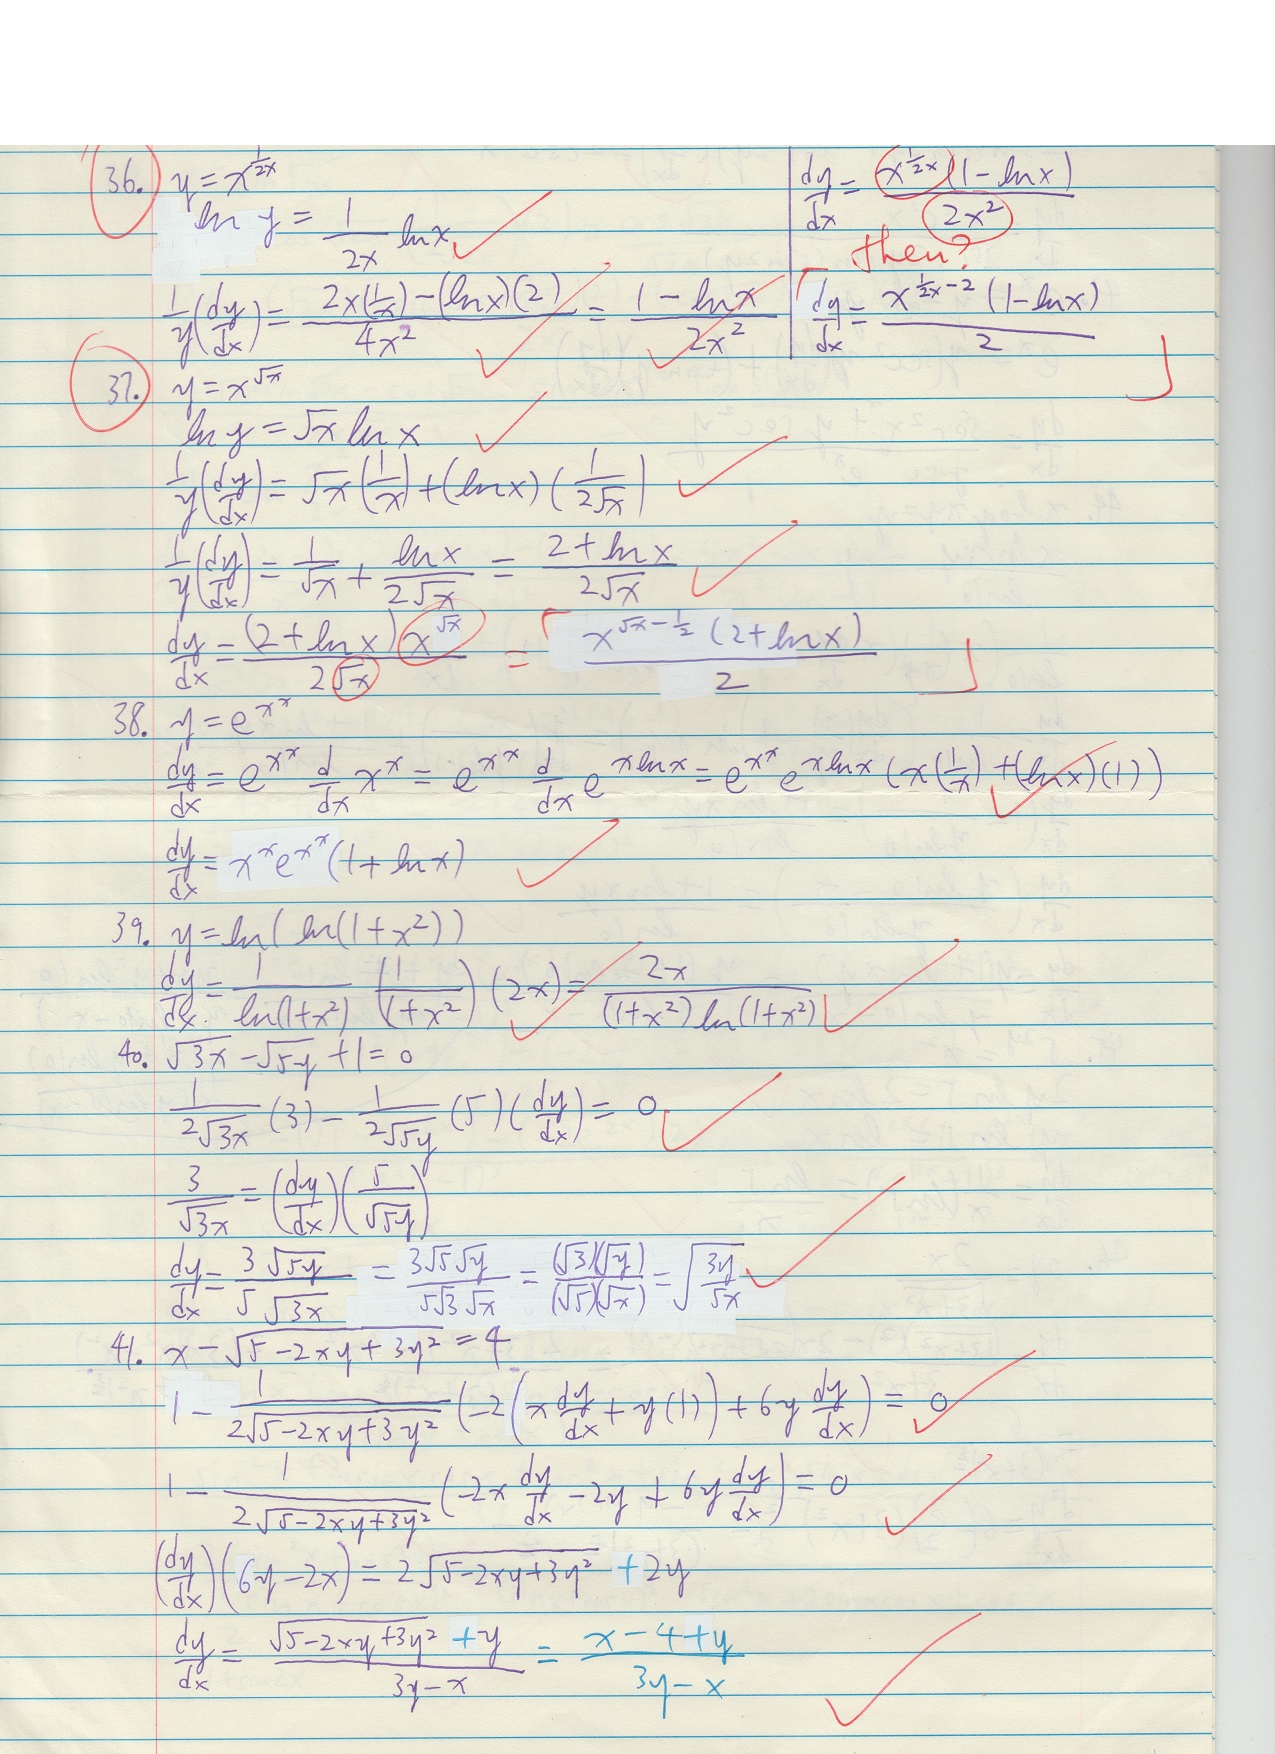 36. y = x^(1/2x)
ln y = 1/(2x) ln x
1/y (dy/dx) = (2x(1/x) − (ln x)(2))/(4x²) = (1 − ln x)/(2x²)
dy/dx = x^(1/2x) (1 − ln x)/(2x²)
then?
dy/dx = x^(1/2x − 2) (1 − ln x)/2
37. y = x^√x
ln y = √x ln x
1/y (dy/dx) = √x (1/x) + (ln x)(1/(2√x))
1/y (dy/dx) = 1/√x + ln x/(2√x) = (2 + ln x)/(2√x)
dy/dx = (2 + ln x) x^√x/(2√x) = x^(√x − 1/2) (2 + ln x)/2
38. y = e^x^x
dy/dx = e^x^x d/dx x^x = e^x^x d/dx e^(x ln x) = e^x^x e^(x ln x) (x(1/x) + (ln x)(1))
dy/dx = x^x e^x^x (1 + ln x)
39. y = ln(ln(1 + x²))
dy/dx = 1/ln(1+x²) (1/(1+x²)) (2x) = 2x/((1+x²) ln(1+x²))
40. √3x − √5y + 1 = 0
1/(2√3x) (3) − 1/(2√5y) (5)(dy/dx) = 0
3/√3x = (dy/dx)(5/√5y)
dy/dx = 3√5y/(5√3x) = 3√5√y/(5√3√x) = (√3)(√y)/((√5)(√x)) = √(3y/5x)
41. x − √(5 − 2xy + 3y²) = 4
1 − 1/(2√(5−2xy+3y²)) (−2(x dy/dx + y(1)) + 6y dy/dx) = 0
1 − 1/(2√(5−2xy+3y²)) (−2x dy/dx − 2y + 6y dy/dx) = 0
(dy/dx)(6y − 2x) = 2√(5−2xy+3y²) + 2y
dy/dx = (√(5−2xy+3y²) + y)/(3y − x) = (x − 4 + y)/(3y − x)